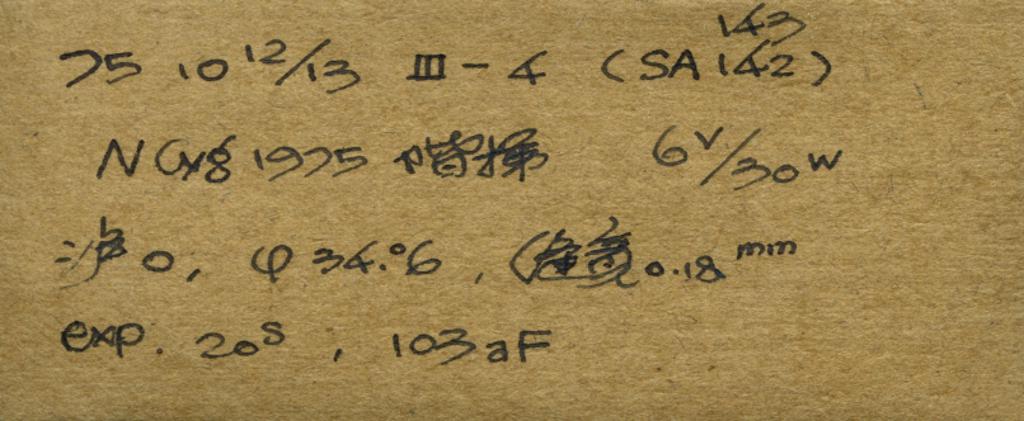 143
75 10 12/13 III - 4 (SA 142)
N Cyg 1975 階梯 6V/30W
0, φ 34.°6, 0.18 mm
exp. 20s, 103aF